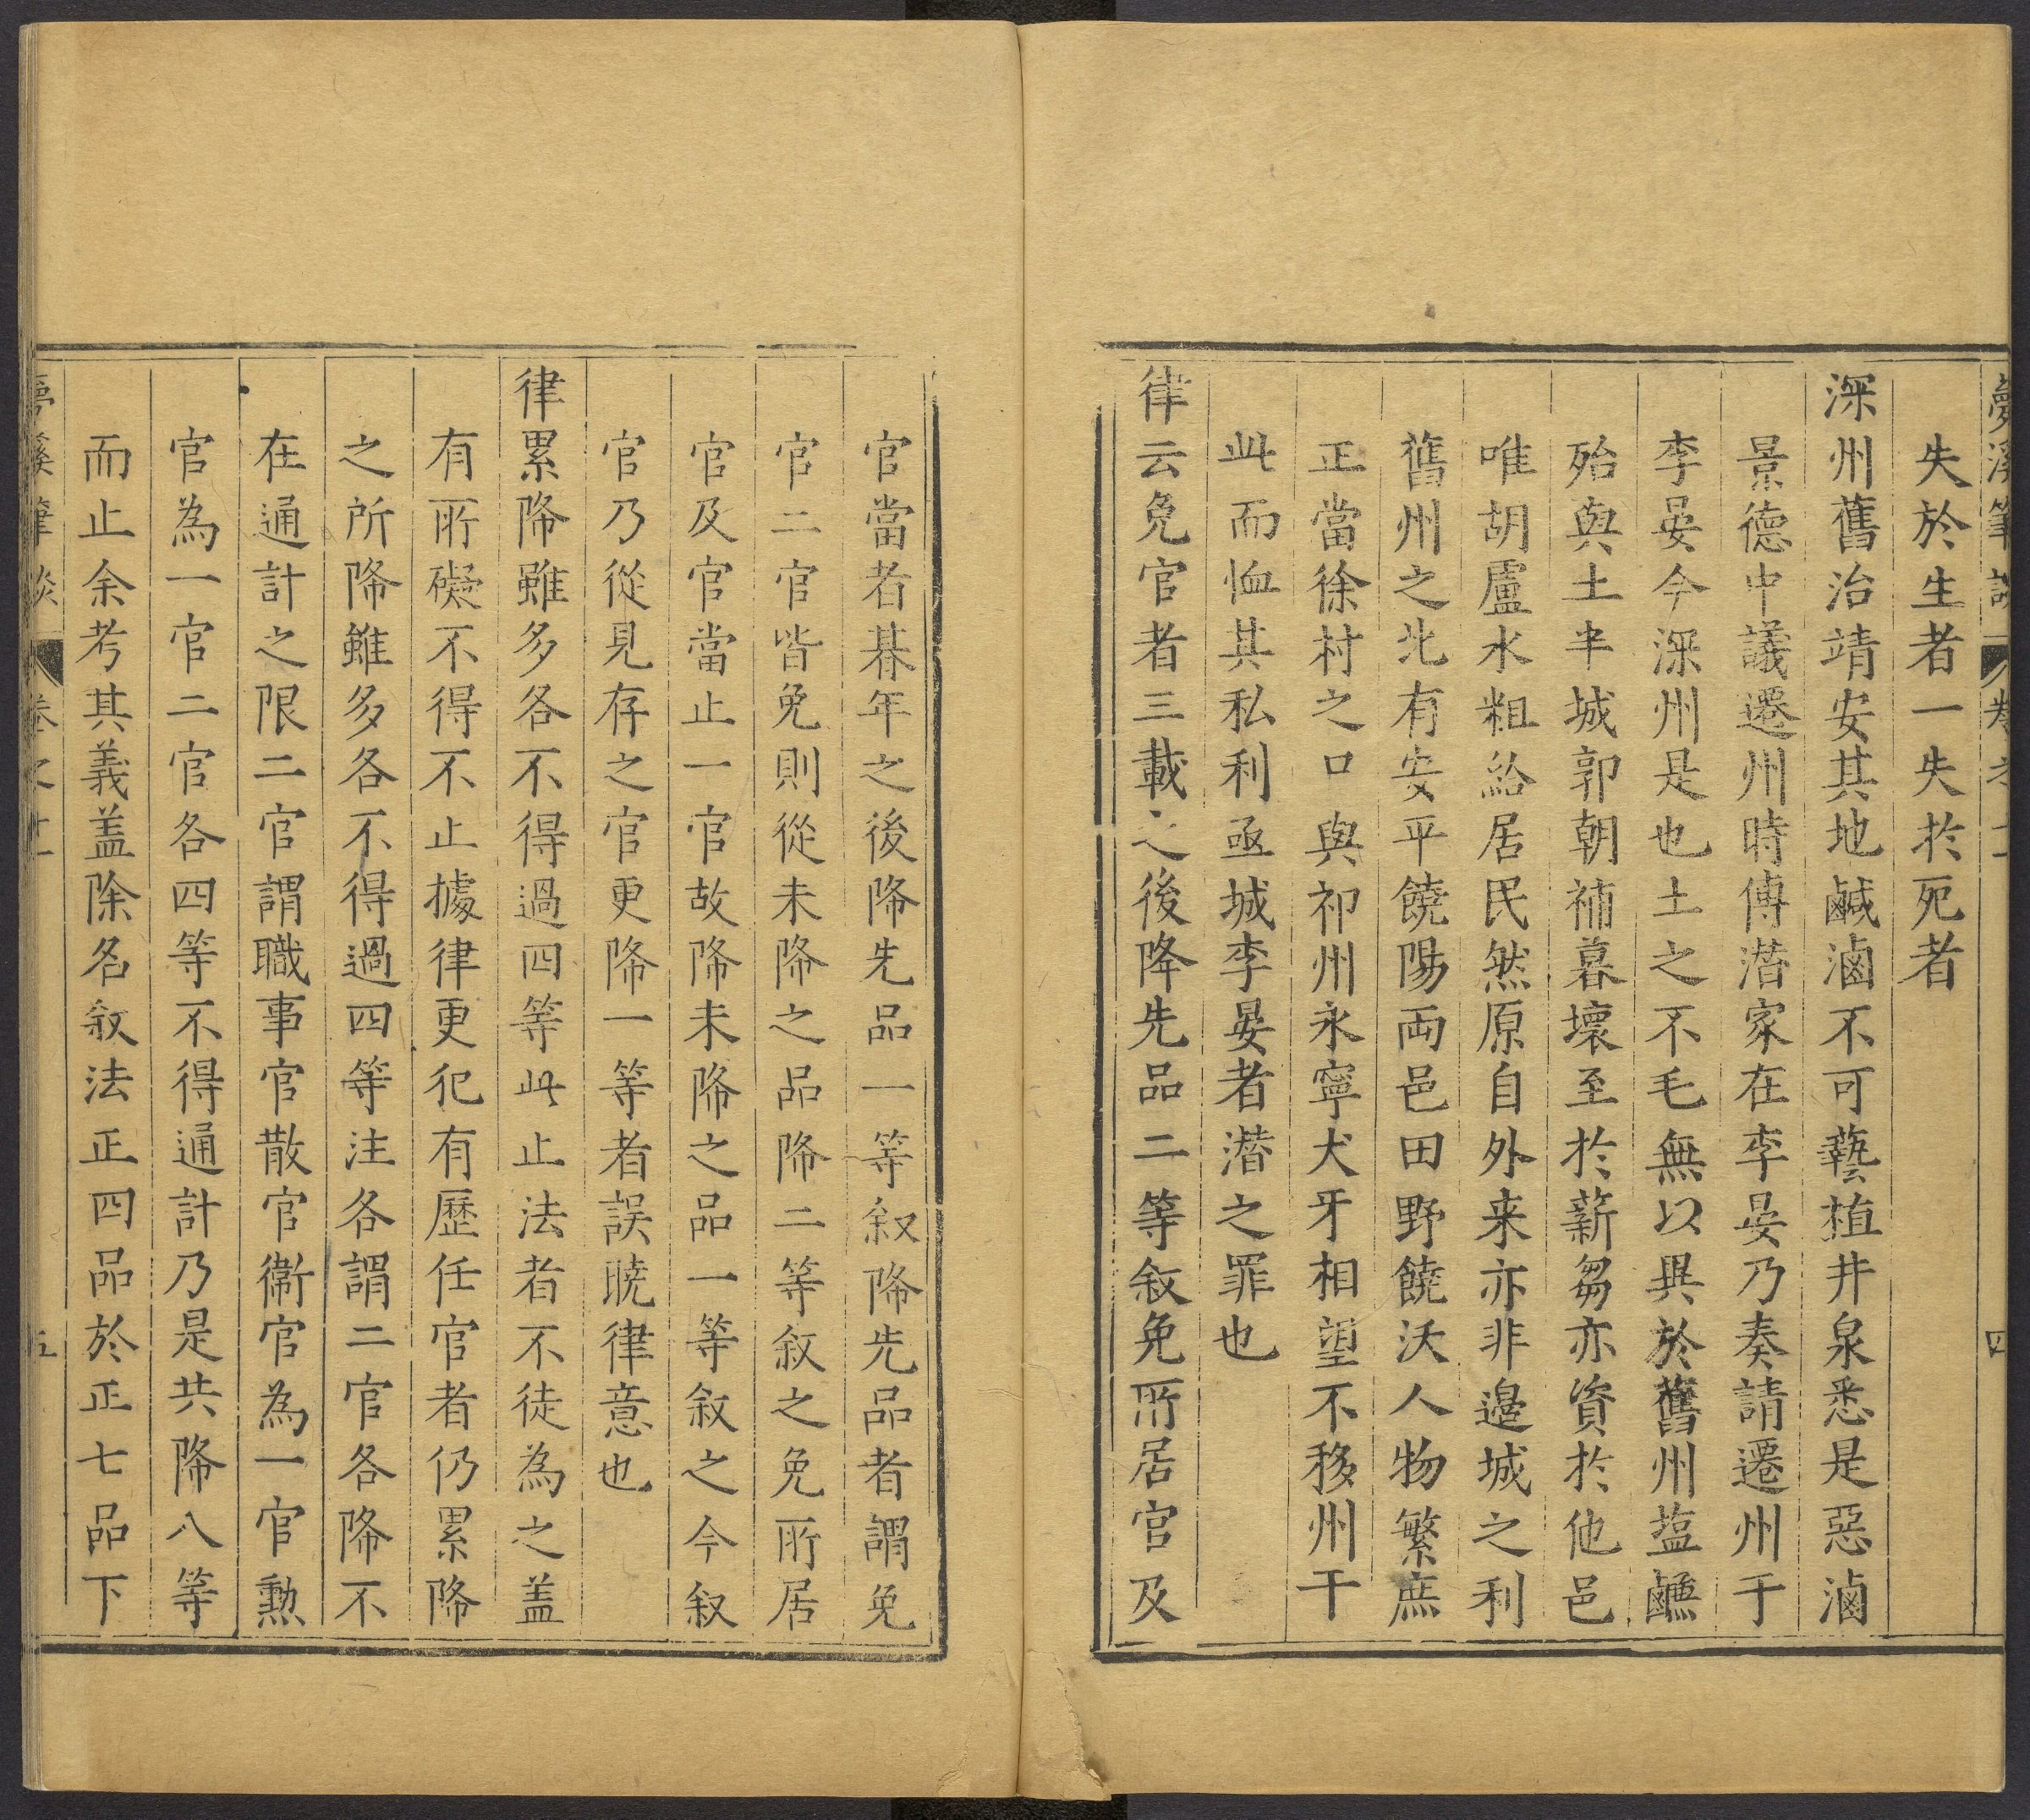 夢溪筆談 卷之十一 四
失於生者一失於死者
深州舊治靖安其地鹹滷不可藝植井泉悉是惡滷
景德中議遷州時傅潛家在李晏乃奏請遷州于
李晏今深州是也土之不毛無以異於舊州塩鹻
殆與土半城郭朝補暮壞至於薪芻亦資於他邑
唯胡盧水粗給居民然原自外来亦非邉城之利
舊州之北有安平饒陽兩邑田野饒沃人物繁庶
正當徐村之口與祁州永寧犬牙相望不移州干
此而恤其私利亟城李晏者潛之罪也
律云免官者三載之後降先品二等叙免所居官及
官當者朞年之後降先品一等叙降先品者謂免
官二官皆免則從未降之品降二等叙之免所居
官及官當止一官故降未降之品一等叙之今叙
官乃從見存之官更降一等者誤曉律意也
律累降雖多各不得過四等此止法者不徒為之盖
有所礙不得不止據律更犯有歷任官者仍累降
之所降雖多各不得過四等注各謂二官各降不
在通計之限二官謂職事官散官衛官為一官勲
官為一官二官各四等不得通計乃是共降八等
而止余考其義盖除名叙法正四品於正七品下
夢溪筆談 卷之十一 五